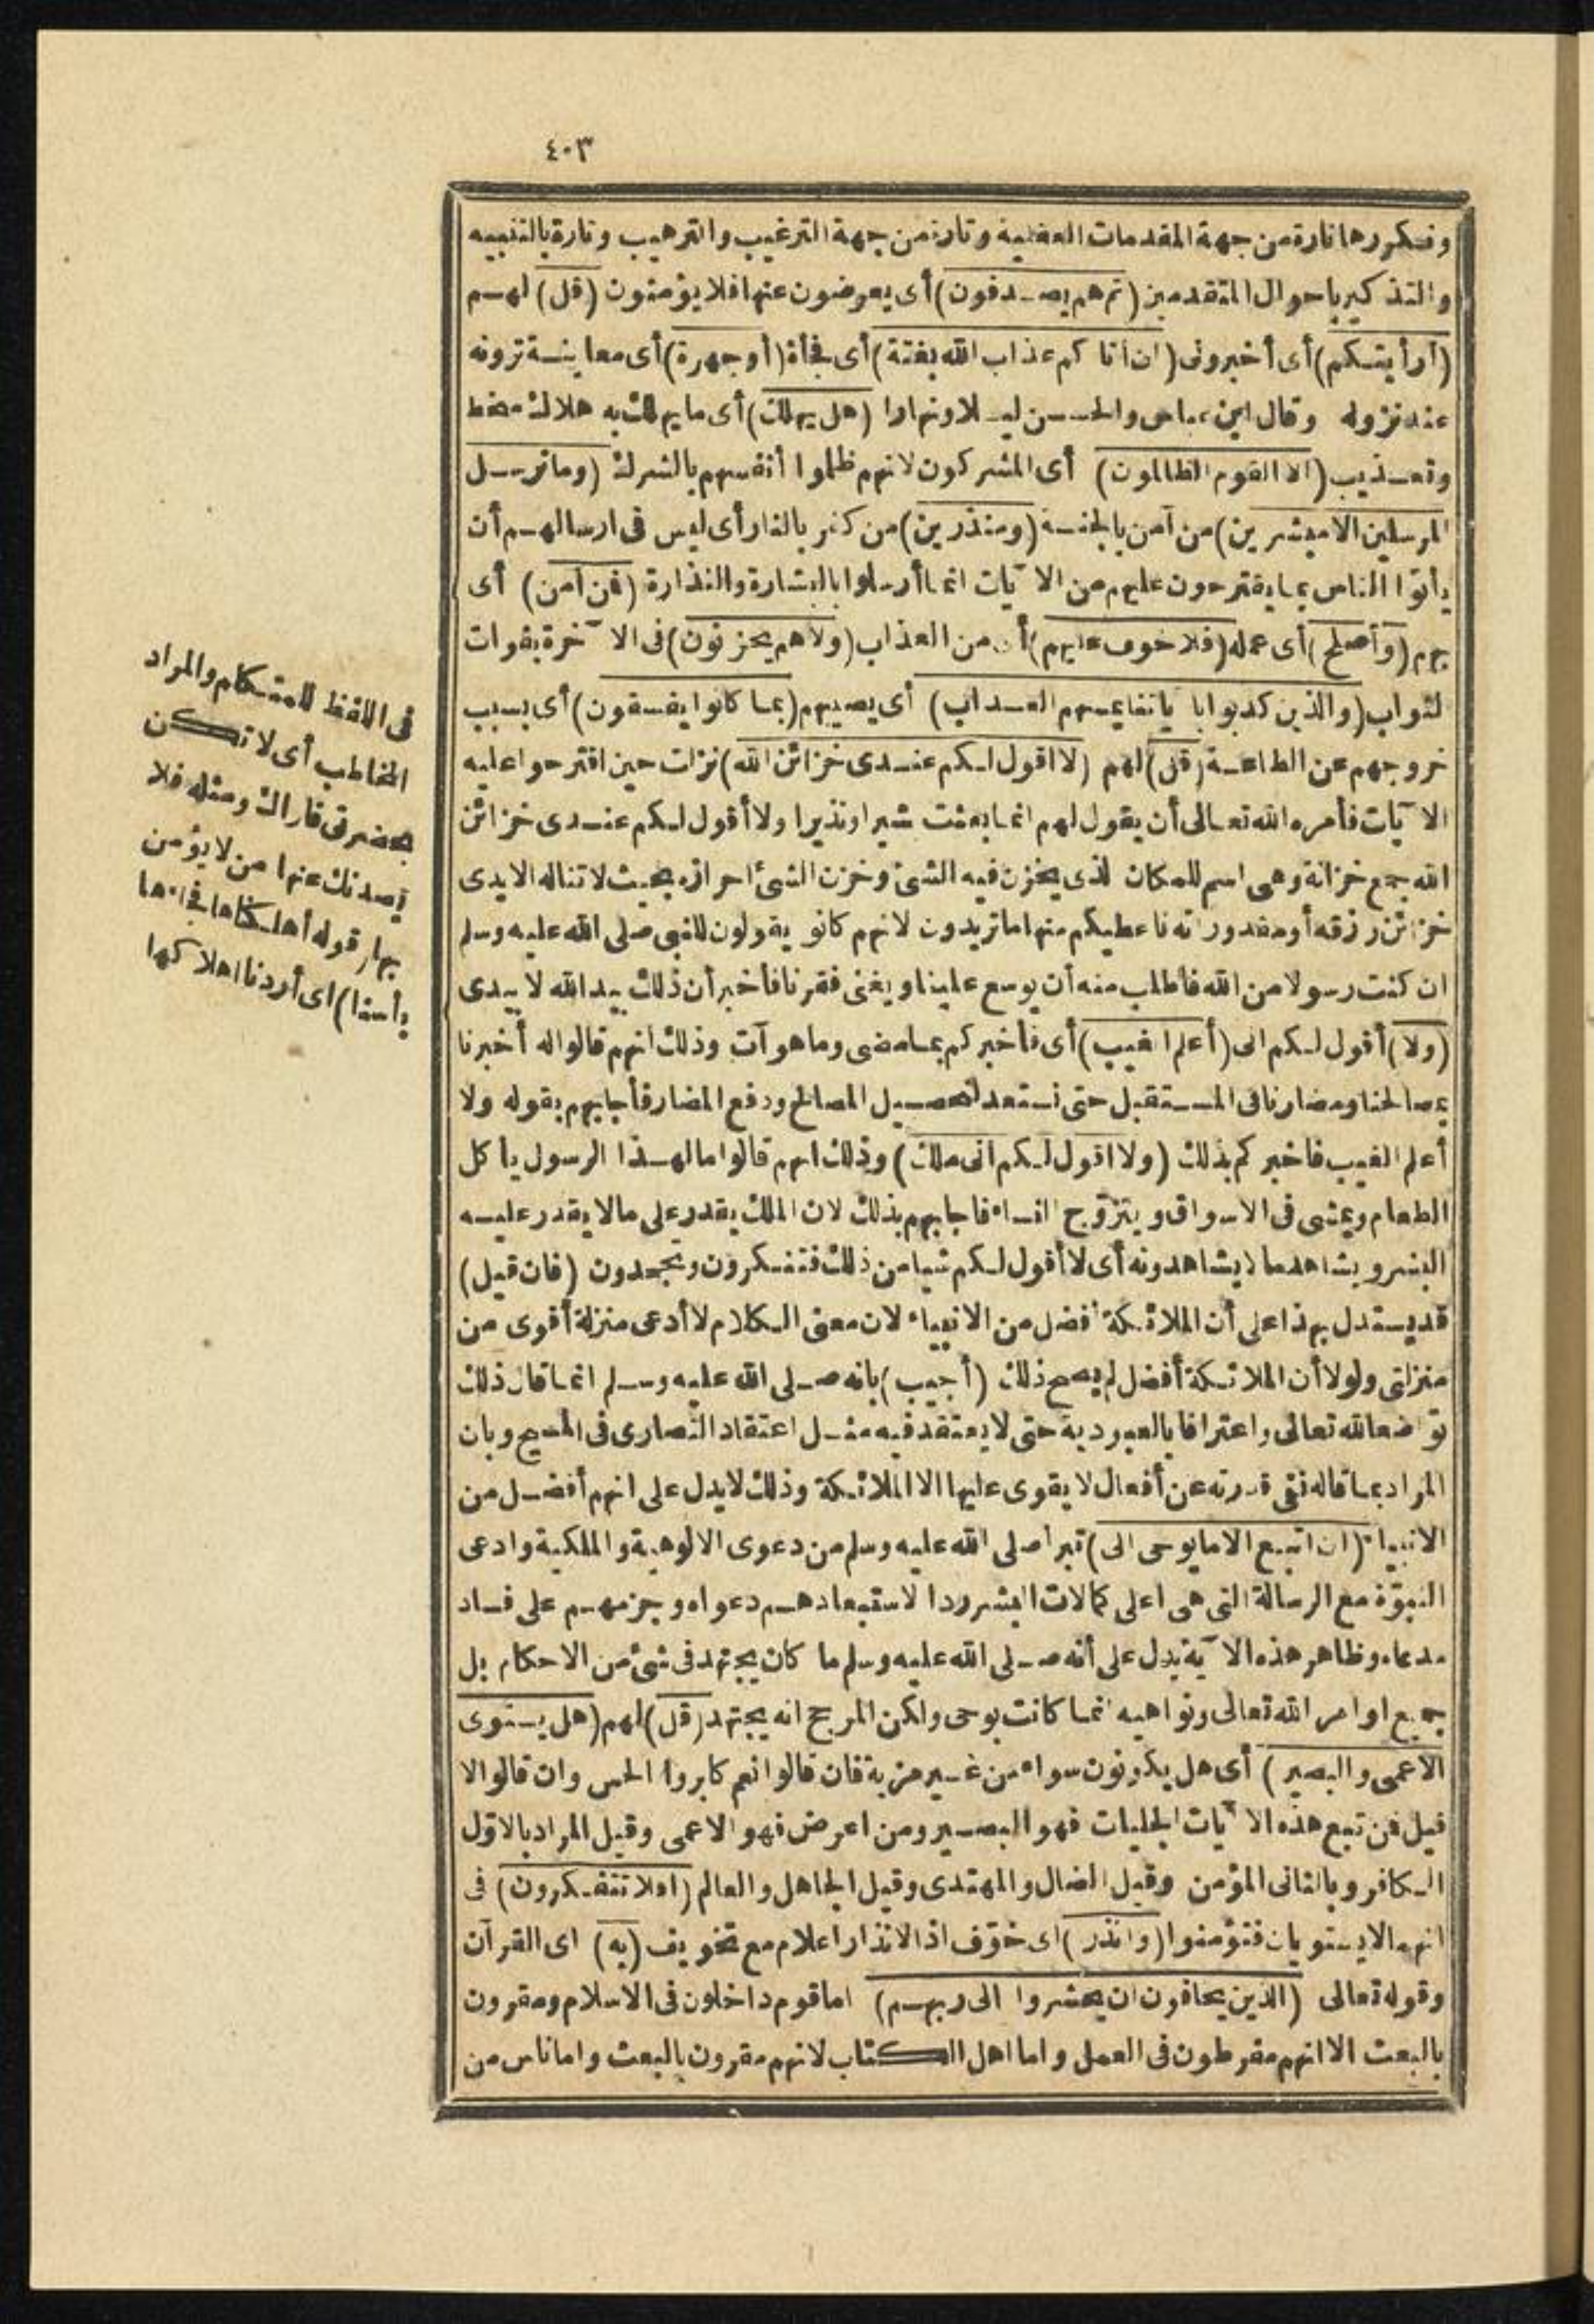 ٤٠٣
ونكررها تارة من جهة المقدمات العقلية وتارة من جهة الترغيب والترهيب وتارة بالتنبيه
والتذكير باحوال المتقدمين (ثم هم يصدفون) أى يعرضون عنها فلا يؤمنون (قل) لهم
(أرأيتكم) أى أخبرونى (ان أتاكم عذاب الله بغتة) أى فجأة (أو جهرة) أى معاينة ترونه
عند نزوله وقال ابن عباس والحسن ليلا ونهارا (هل يهلك) أى ما يهلك به هلاك سخط
وتعذيب (الا القوم الظالمون) أى المشركون لانهم ظلموا أنفسهم بالشرك (وما نرسل
المرسلين الا مبشرين) من آمن بالجنة (ومنذرين) من كفر بالنار أى ليس فى ارسالهم أن
يأتوا الناس بما يقترحون عليهم من الآيات انما أرسلوا بالبشارة والنذارة (فمن آمن) أى
بهم (وأصلح) أى عمله (فلا خوف عليهم) أى من العذاب (ولا هم يحزنون) فى الآخرة بفوات
لثواب (والذين كذبوا باياتنا يمسهم العذاب) أى يصيبهم (بما كانوا يفسقون) أى بسبب
خروجهم عن الطاعة (قل) لهم (لا اقول لكم عندى خزائن الله) نزلت حين اقترحوا عليه
الآيات فأمره الله تعالى أن يقول لهم انما بعثت بشيرا ونذيرا ولا أقول لكم عندى خزائن
الله جمع خزانة وهى اسم للمكان لذى يخزن فيه الشئ وخزن الشئ احرازه بحيث لا تناله الايدى
خزائن رزقه أو مقدوراته فاعطيكم منها ما تريدون لانهم كانو يقولون للنبى صلى الله عليه وسلم
ان كنت رسولا من الله فاطلب منه أن يوسع علينا ويغنى فقرنا فأخبر أن ذلك بيد الله لا بيدى
(ولا) أقول لكم انى (أعلم الغيب) أى فأخبركم بما مضى وما هو آت وذلك انهم قالوا له أخبرنا
بمصالحنا ومضارنا فى المستقبل حتى نستعد لتحصيل المصالح ودفع المضار فأجابهم بقوله ولا
أعلم الغيب فاخبركم بذلك (ولا اقول لكم انى ملك) وذلك انهم قالوا مال هذا الرسول يأكل
الطعام ويمشى فى الاسواق ويتزوّج النساء فاجابهم بذلك لان الملك يقدر على مالا يقدر عليه
البشر ويشاهد مالا يشاهدونه أى لا أقول لكم شيا من ذلك فتنكرون وتجحدون (فان قيل)
قد يستدل بهذا على أن الملائكة أفضل من الانبياء لان معنى الكلام لا أدعى منزلة أقوى من
منزلتى ولولا أن الملائكة أفضل لم يصح ذلك (أجيب) بانه صلى الله عليه وسلم انما قال ذلك
تواضعا لله تعالى واعترافا بالعبودية حتى لا يعتقد فيه مثل اعتقاد النصارى فى المسيح وبان
المراد بما قاله نفى قدرته عن أفعال لا يقوى عليها الا الملائكة وذلك لا يدل على انهم أفضل من
الانبياء (ان اتبع الا ما يوحى الى) تبرأ صلى الله عليه وسلم من دعوى الالوهية والملكية وادعى
النبوّة مع الرسالة التى هى اعلى كمالات البشر ردا لاستبعادهم دعواه وجزمهم على فساد
مدعاه وظاهر هذه الآية يدل على أنه صلى الله عليه وسلم ما كان يجتهد فى شئ من الاحكام بل
جميع اوامر الله تعالى ونواهيه انما كانت بوحى ولكن المرجح انه يجتهد (قل) لهم (هل يستوى
الاعمى والبصير) أى هل يكونون سواء من غير مزية فان قالوا نعم كابروا الحس وان قالوا لا
قيل فمن تبع هذه الآيات الجليات فهو البصير ومن اعرض فهو الاعمى وقيل المراد بالاوّل
الكافر وبالثانى المؤمن وقيل الضال والمهتدى وقيل الجاهل والعالم (افلا تتفكرون) فى
انهما لا يستويان فتؤمنوا (وانذر) اى خوّف اذ الانذار اعلام مع تخويف (به) اى القرآن
وقوله تعالى (الذين يخافون ان يحشروا الى ربهم) اما قوم داخلون فى الاسلام ومقرون
بالبعث الا انهم مفرطون فى العمل واما اهل الكتاب لانهم مقرون بالبعث واما ناس من
فى اللفظ للمتكلم والمراد
المخاطب أى لا تكن
بحضرتى فاراك ومثله فلا
يصدنك عنها من لا يؤمن
بها وقوله أهلكناها فجاءها
بأسنا) اى أردنا اهلاكها